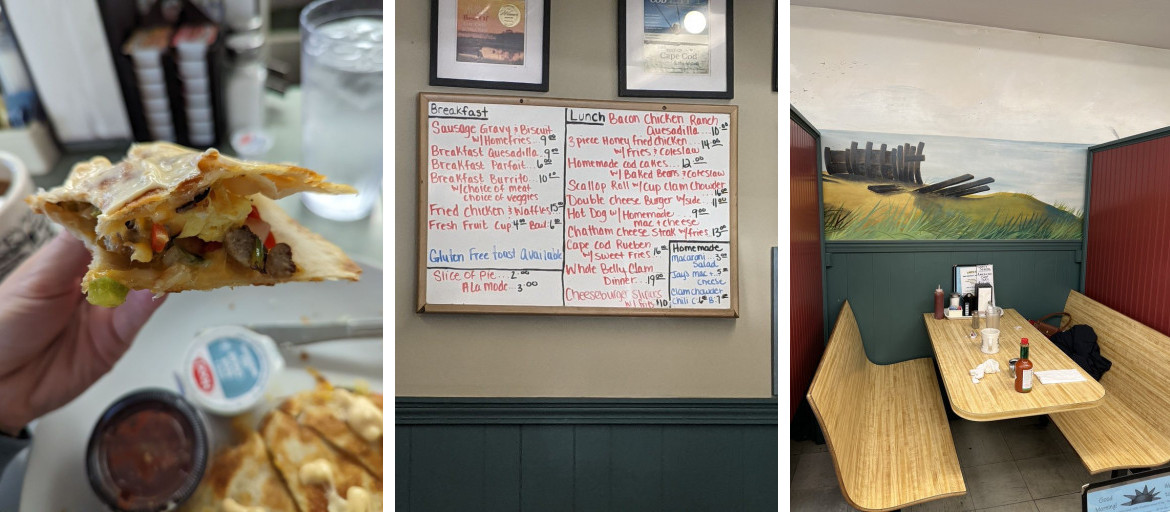 Cape Cod
Breakfast
Sausage Gravy & Biscuit
w/Homefries 9.00
Breakfast Quesadilla 9.00
Breakfast Parfait 6.00
Breakfast Burrito 10.00
w/choice of meat
choice of veggies
Fried chicken & Waffles 15.00
Fresh Fruit Cup 4.00 Bowl 6.00
Gluten Free toast Available
Slice of Pie... 2.00
A La mode... 3.00
Lunch
Bacon Chicken Ranch
Quesadilla... 10.00
3 piece Honey fried chicken... 14.00
w/fries & Coleslaw
Homemade cod cakes... 12.00
w/ Baked Beans & Coleslaw
Scallop Roll w/Cup Clam Chowder
Double cheese Burger w/side
Hot Dog w/Homemade 9.00
mac + cheese
Chatham Cheese Steak w/fries 13.00
Cape Cod Rueben 16.00
w/Sweet Fries
Whole Belly Clam
Dinner... 19.00
Cheeseburger Sliders
w/ fries $10
Homemade
macaroni
Salad
Jay's mac +
cheese
Clam chowder
Chili
Good
Morning!